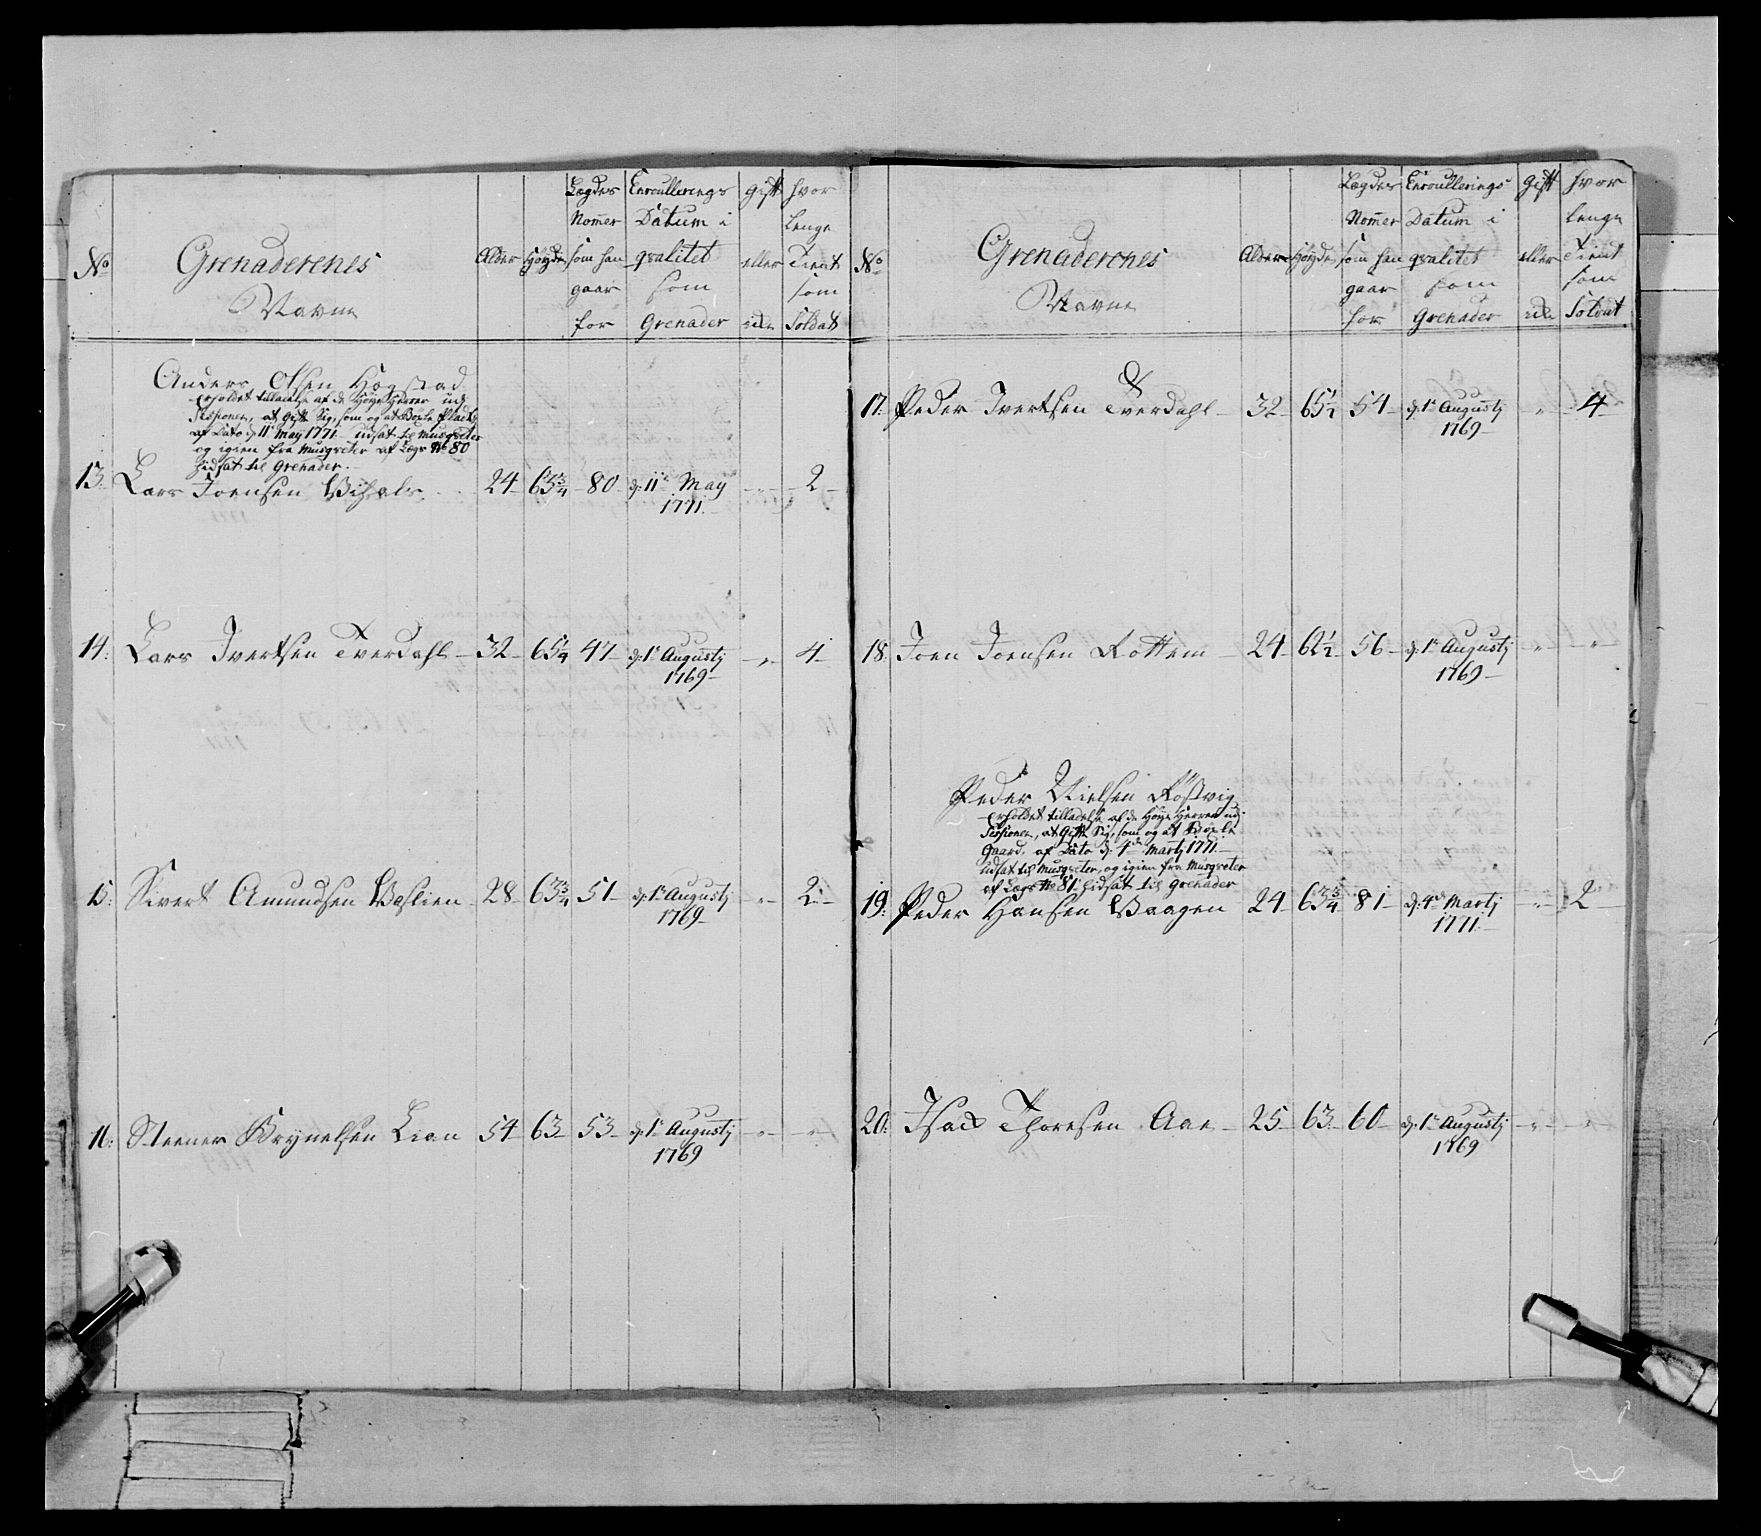 No
Grenaderenes
Navne
Alder
Höyde
Lægdes
Nom̄er
som han
gaar
for
Enroullerings
Datum i
qvalitet
som
Grenader
Gift
eller
ei
hvor
lenge
Tient
som
Soldat
Anders Olsen Hogstad
erholdet tilladelse af de Höye Herrer udj
Sessionen, at Gifte Sig, som og at
af Dato d. 11te May 1771 udsat til Musqveter
og igien fra Musqveter af Legd No 80
hidsat til Grenader.
13. Lars Joensen 24 63¾ 80 d. 11te May 1771 „ 2
14. Lars Ivertsen Tverdahl 32 65¼ 47 d. 1te Augustj 1769 „ 4
15. Sivert Amundsen 28 63¾ 51 d. 1te Augustj 1769 „ 2
16. Steener Brynelsen Lian 54 63 53 d. 1te Augustj 1769 „ „
No
Grenaderenes
Navne
Alder
Höyde
Lægdes
Nom̄er
som han
gaar
for
Enroullerings
Datum i
qvalitet
som
Grenader
Gift
eller
ei
hvor
lenge
Tient
som
Soldat
17. Peder Ivertsen Tverdahl 32 65½ 54 d. 1te Augustj 1769 „ 4
18. Joen Joensen Rottem 24 62½ 56 d. 1te Augustj 1769 „ „
Peder Nielsen Röstvig
erholdet tilladelse af de Höye Herrer udj
Sessionen, at Gifte Sig, som og at
Gaard, af Dato d. 4de Martj 1771
udsat til Musqveter, og igien fra Musqveter
af Legs No 81 hidsat til Grenader
19. Peder Hansen Vaagen 24 63¾ 81 d. 4de Martj 1771 „ 2
20. Isach Thoresen Aae 25 63 60 d. 1te Augustj 1769 „ „